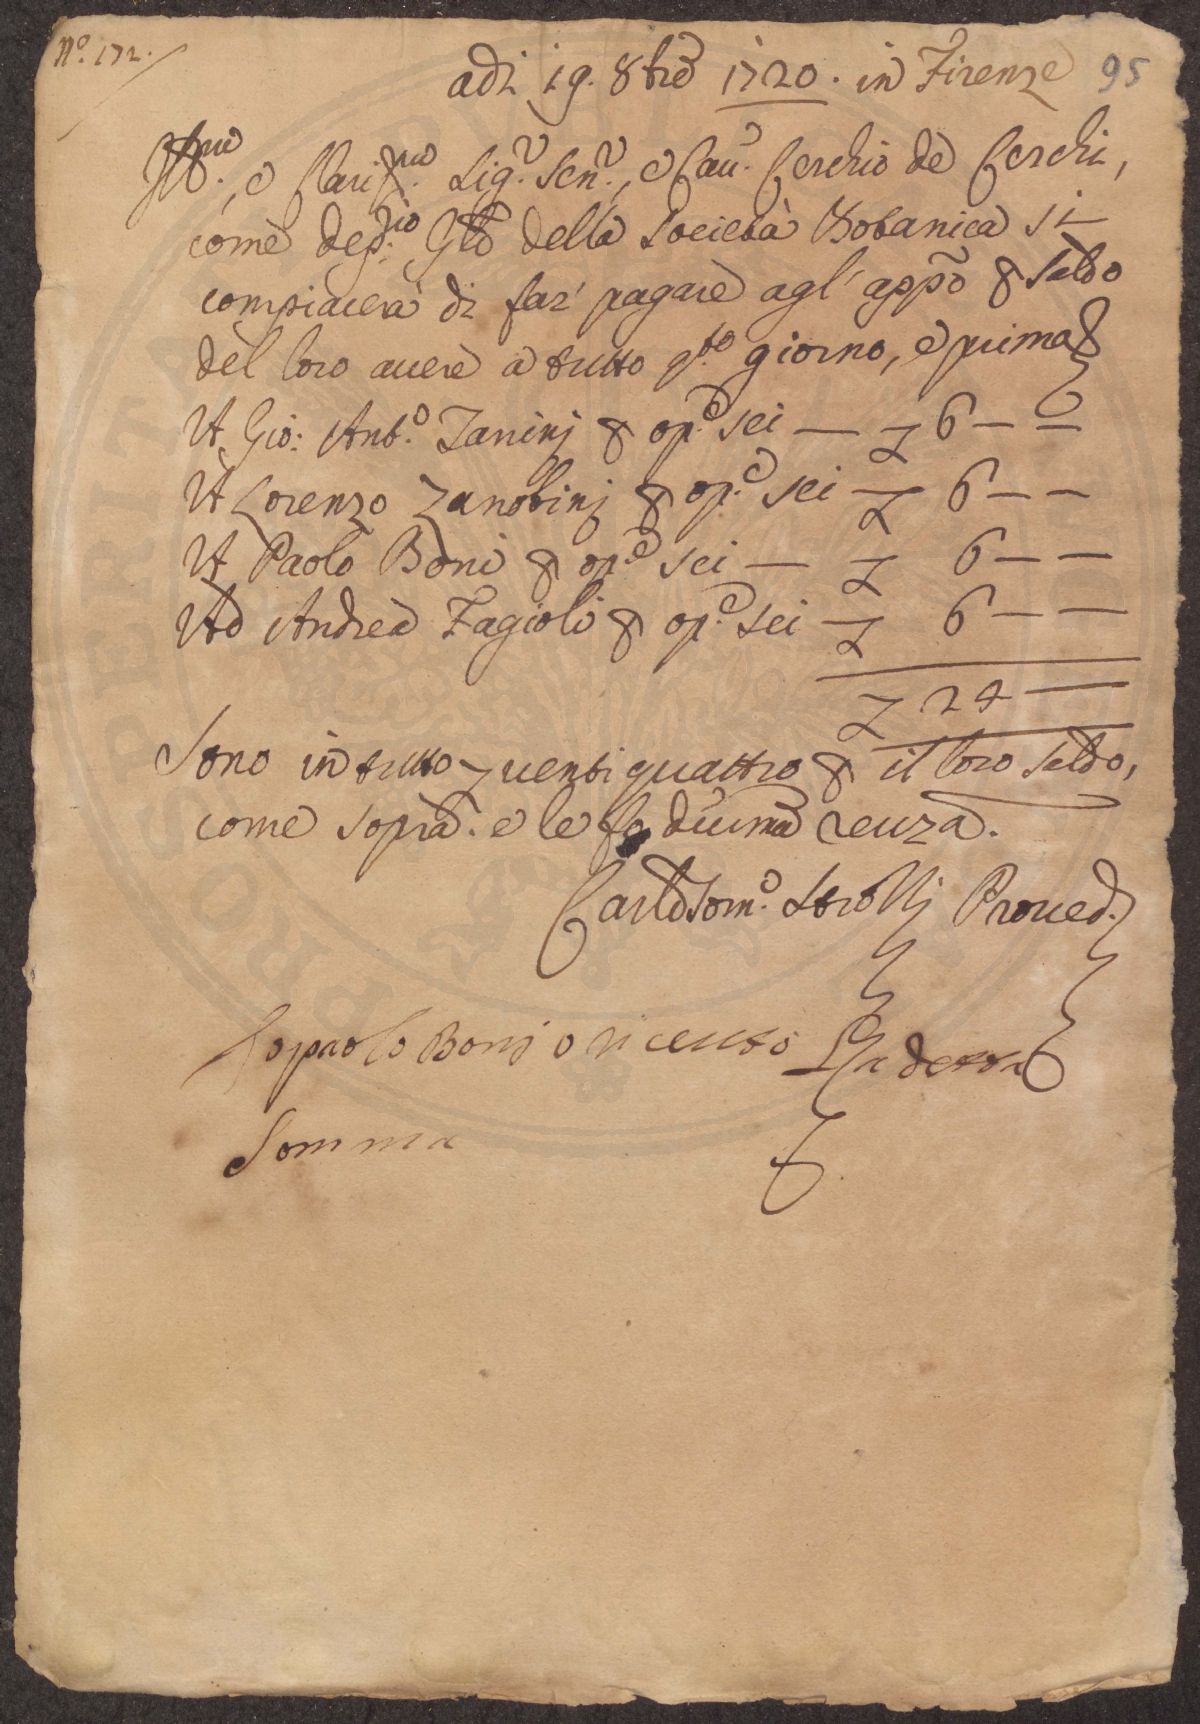 N.o 172.
adi 19. 8bre 1720. in Firenze 95
Ill.mo, e Clariss.mo Sig.r Sen.r, e Cau.r Cerchio de Cerchi,
come dep.rio Gle della Società Botanica si
compiacerà di far' pagare agl' appo p saldo
del loro auere a tutto q.to giorno, e prima
A Gio: Ant.o Zaninj p op.e sei — 7 6 — —
A Lorenzo Zanobinj p op.e sei — 7 6 — —
A Paolo Boni p op.e sei — 7 6 — —
Ad Andrea Fagioli p op.e sei — 7 6 — —
7 24 —
Sono in tutto 7 uentiquattro p il loro saldo,
come sopra. e le fo diuma reuza.
Carlo Tom.o Proued.
Io paolo Bonj o riceuto La detta
Somma